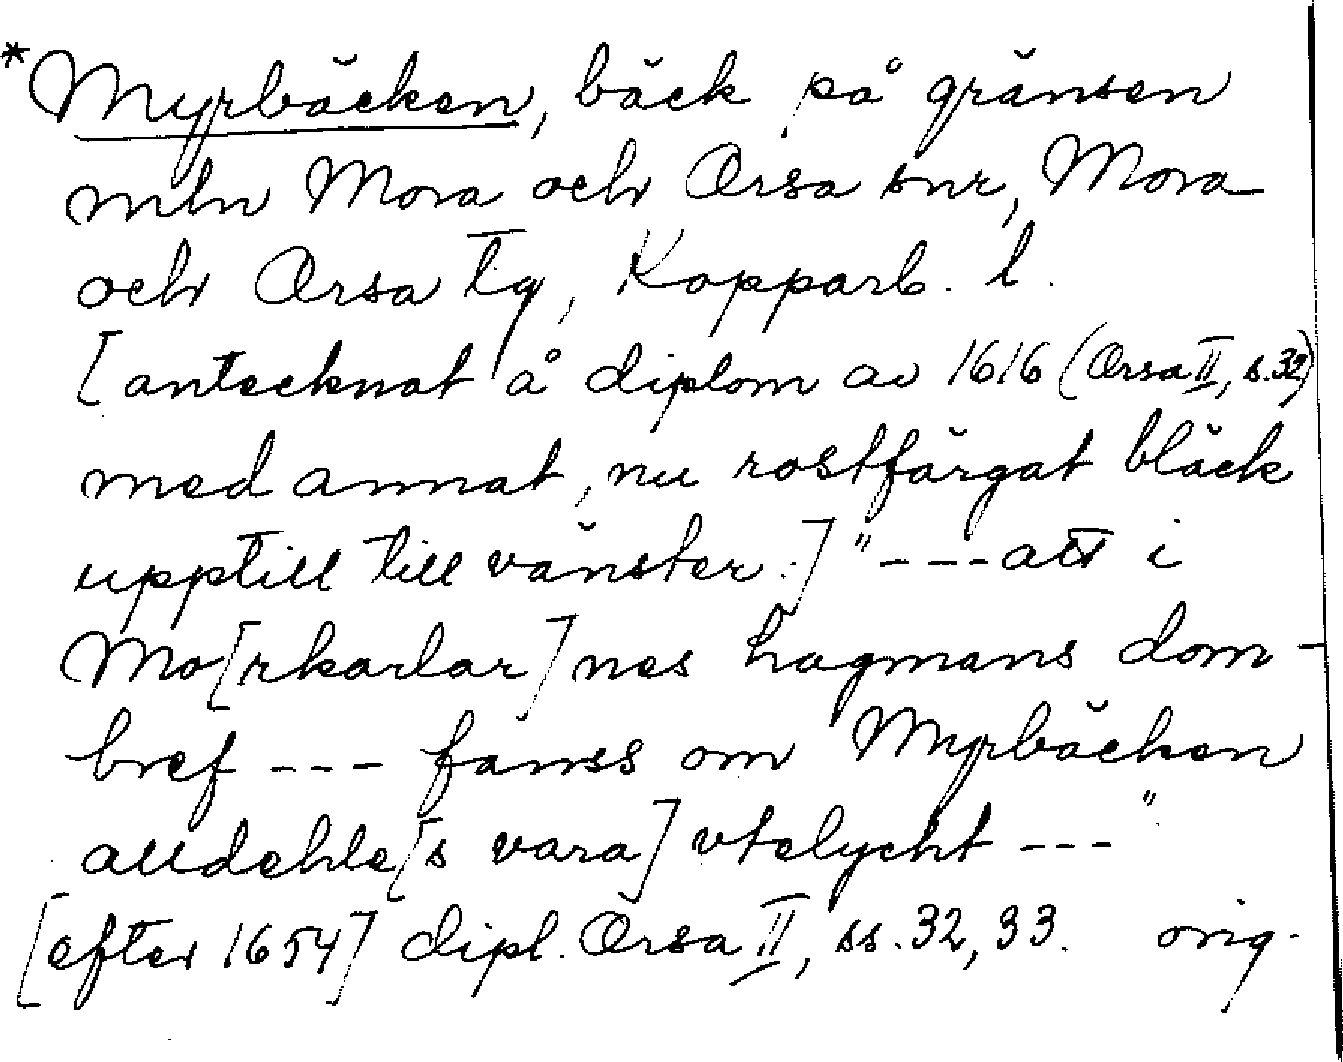 *Myrbäcken, bäck på gränsen
mln Mora och Orsa snr, Mora
och Orsa tg, Kopparb. l.
[antecknat å diplom av 1616 (Orsa II, s.32)
med annat, nu rostfärgat bläck
upptill till vänster.] "---att i
Mo[rkarlar]nes Lagmans dom-
bref --- fanss om Myrbäcken
alldehle[s vara] vtelycht ---"
[efter 1654] dipl. Orsa II, ss. 32, 33. orig.